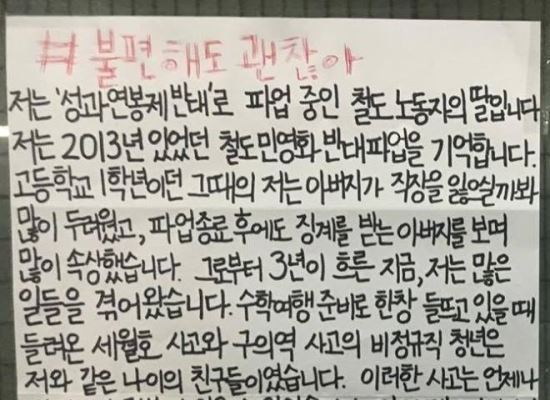 #불편해도 괜찮아
저는 '성과연봉제 반대'로 파업 중인 철도 노동자의 딸입니다
저는 2013년 있었던 철도민영화 반대파업을 기억합니다.
고등학교 1학년이던 그때의 저는 아버지가 직장을 잃으실까봐
많이 두려웠고, 파업종료 후에도 징계를 받는 아버지를 보며
많이 속상했습니다. 그로부터 3년이 흐른 지금, 저는 많은
일들을 겪어왔습니다. 수학여행 준비로 한창 들뜨고 있을 때
들려온 세월호 사고와 구의역 사고의 비정규직 청년은
저와 같은 나이의 친구들이였습니다. 이러한 사고는 언제나